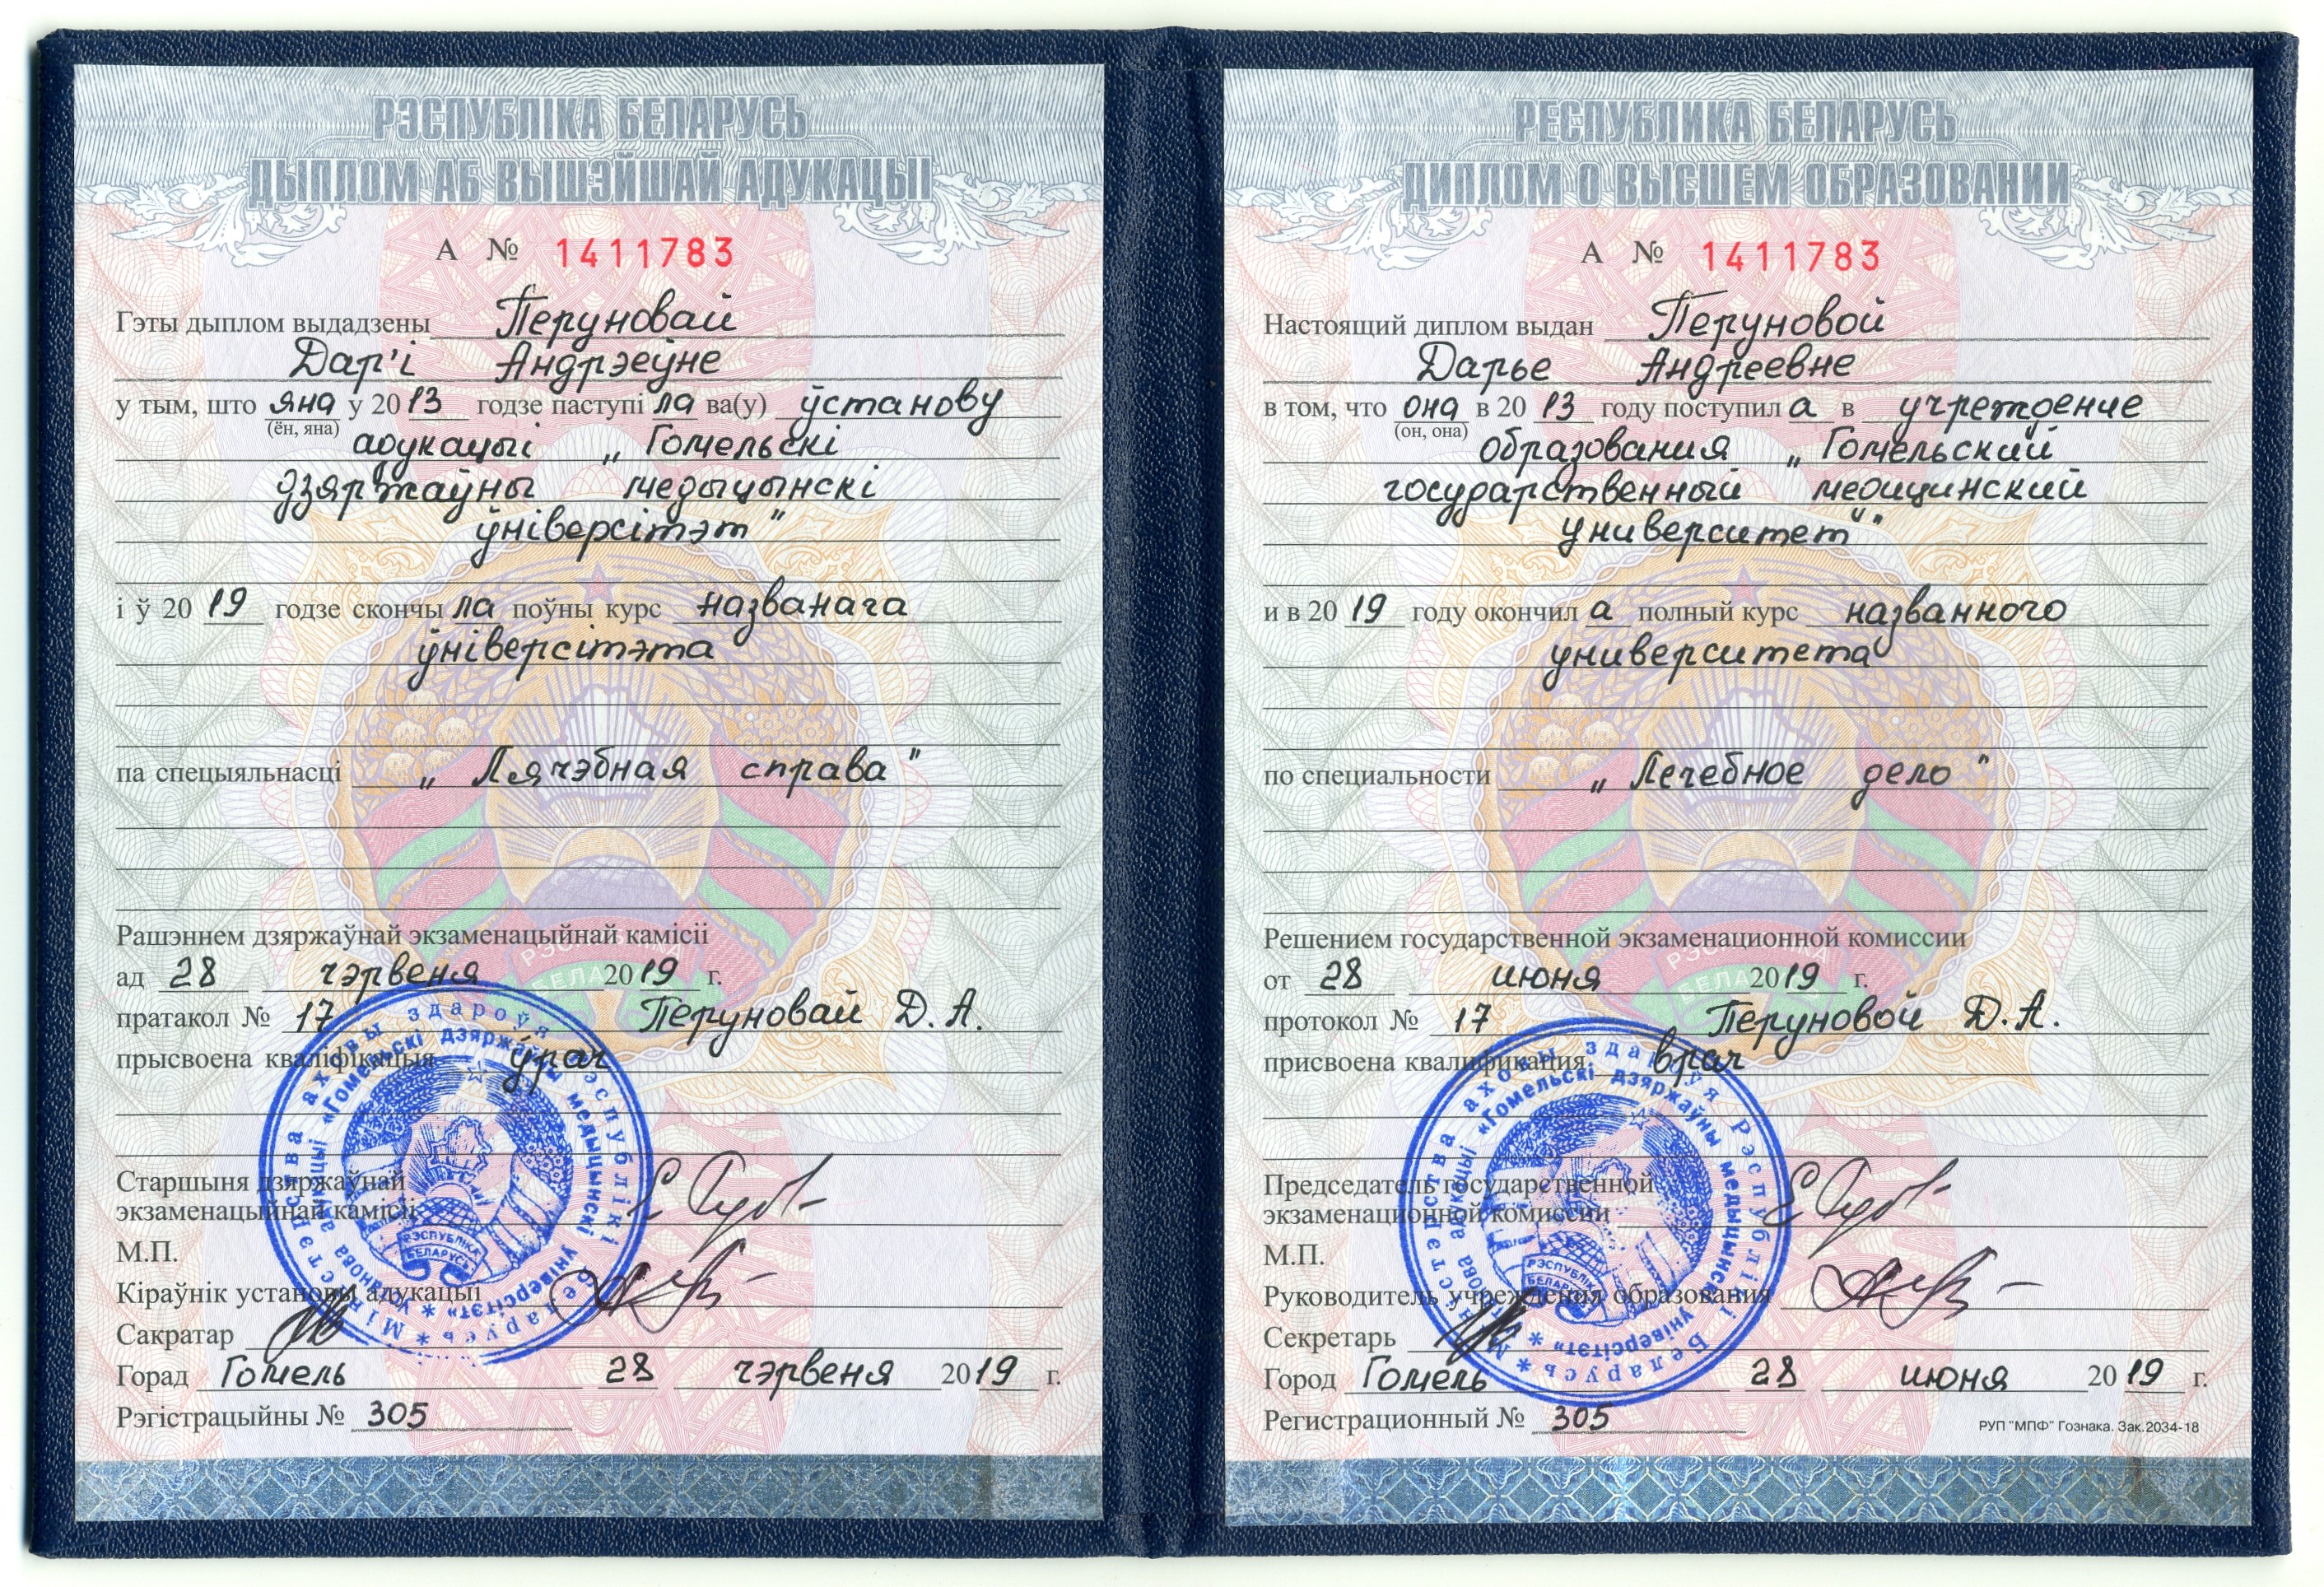 РЭСПУБЛІКА БЕЛАРУСЬ
ДЫПЛОМ АБ ВЫШЭЙШАЙ АДУКАЦЫІ
А № 1411783
Гэты дыплом выдадзены Перуновай
Дар'і Андрэеўне
у тым, што яна у 2013 годзе паступі ла ва(у) ўстанову
(ён, яна)
адукацыі „Гомельскі
дзяржаўны медыцынскі
ўніверсітэт"
і ў 2019 годзе скончы ла поўны курс названага
ўніверсітэта
па спецыяльнасці „Лячэбная справа"
Рашэннем дзяржаўнай экзаменацыйнай камісіі
ад 28 чэрвеня 2019 г.
пратакол № 17 Перуновай Д.А.
прысвоена кваліфікацыя ўрач
Старшыня дзяржаўнай
экзаменацыйнай камісіі
М.П.
Кіраўнік установы адукацыі
Сакратар
Горад Гомель 28 чэрвеня 2019 г.
Рэгістрацыйны № 305
Міністэрства аховы здароўя Рэспублікі Беларусь *
Установа адукацыі «Гомельскі дзяржаўны медыцынскі ўніверсітэт» *
РЭСПУБЛІКА
БЕЛАРУСЬ
РЕСПУБЛИКА БЕЛАРУСЬ
ДИПЛОМ О ВЫСШЕМ ОБРАЗОВАНИИ
А № 1411783
Настоящий диплом выдан Перуновой
Дарье Андреевне
в том, что она в 2013 году поступил а в учреждение
(он, она)
образования „Гомельский
государственный медицинский
университет"
и в 2019 году окончил а полный курс названного
университета
по специальности „Лечебное дело"
Решением государственной экзаменационной комиссии
от 28 июня 2019 г.
протокол № 17 Перуновой Д.А.
присвоена квалификация врач
Председатель государственной
экзаменационной комиссии
М.П.
Руководитель учреждения образования
Секретарь
Город Гомель 28 июня 2019 г.
Регистрационный № 305
РУП "МПФ" Гознака. Зак.2034-18
Міністэрства аховы здароўя Рэспублікі Беларусь *
Установа адукацыі «Гомельскі дзяржаўны медыцынскі ўніверсітэт» *
РЭСПУБЛІКА
БЕЛАРУСЬ